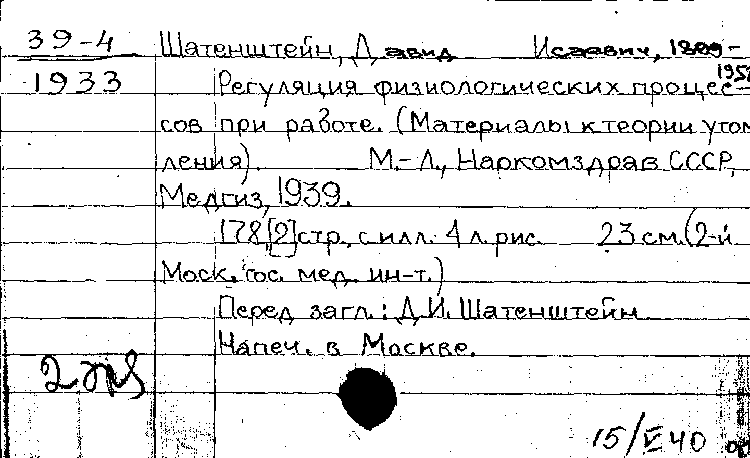 39-4
1933
Шатенштейн, Давид Исаевич, 1899-
195
Регуляция физиологических процес-
сов при работе. (Материалы к теории утом
ления). М.-Л., Наркомздрав СССР,
Медгиз, 1939.
178,[2] стр., с илл. 4 л. рис. 23 см. (2-й
Моск. гос. мед. ин-т.)
Перед загл.: Д.И. Шатенштейн
Напеч. в Москве.
2 экз
15/V 40